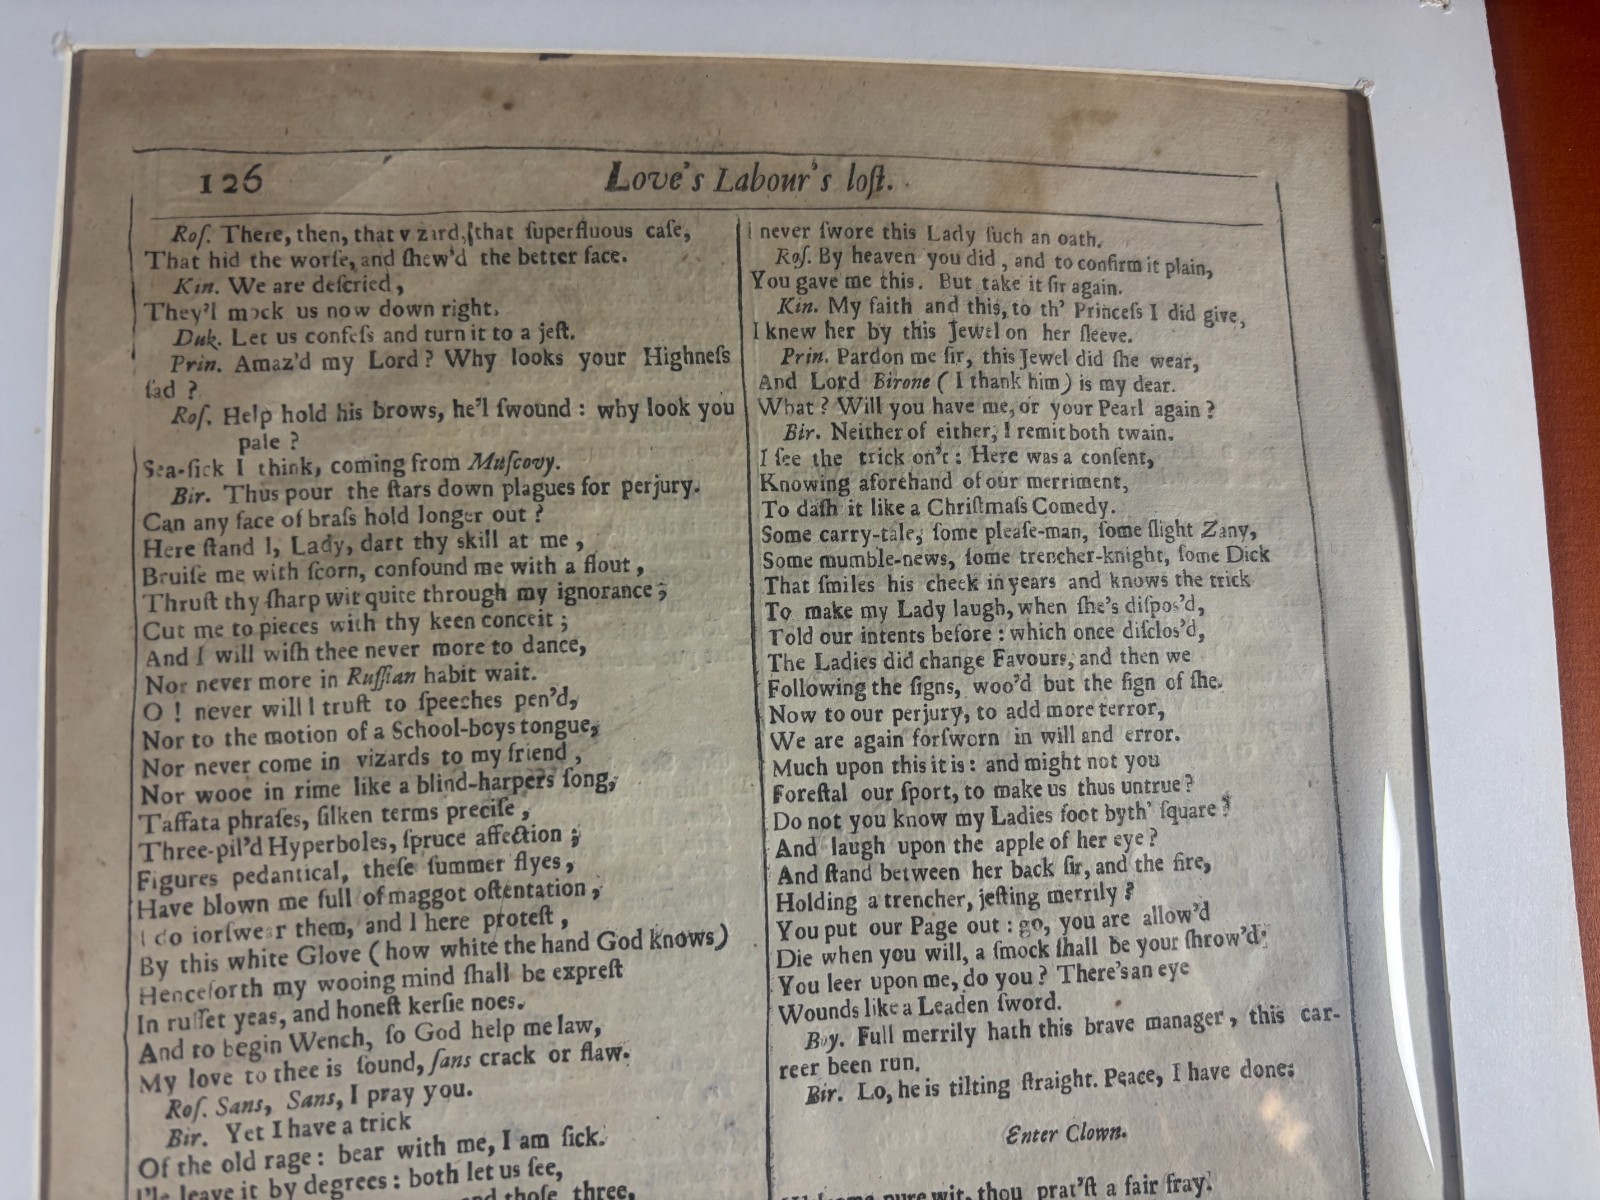 126
Love's Labour's loſt.
Roſ. There, then, that v zard, that ſuperfluous caſe,
That hid the worſe, and ſhew'd the better face.
Kin. We are deſcried,
They'l mock us now down right.
Duk. Let us confeſs and turn it to a jeſt.
Prin. Amaz'd my Lord? Why looks your Highneſs
ſad ?
Roſ. Help hold his brows, he'l ſwound : why look you
pale ?
Sea-ſick I think, coming from Muſcovy.
Bir. Thus pour the ſtars down plagues for perjury.
Can any face of braſs hold longer out ?
Here ſtand I, Lady, dart thy skill at me ,
Bruiſe me with ſcorn, confound me with a flout ,
Thruſt thy ſharp wit quite through my ignorance ;
Cut me to pieces with thy keen conceit ;
And I will wiſh thee never more to dance,
Nor never more in Ruſſian habit wait.
O ! never will I truſt to ſpeeches pen'd,
Nor to the motion of a School-boys tongue,
Nor never come in vizards to my friend ,
Nor wooe in rime like a blind-harpers ſong,
Taffata phraſes, ſilken terms preciſe ,
Three-pil'd Hyperboles, ſpruce affection ;
Figures pedantical, theſe ſummer flyes ,
Have blown me full of maggot oſtentation ,
I do forſwear them, and I here proteſt ,
By this white Glove ( how white the hand God knows)
Henceforth my wooing mind ſhall be expreſt
In ruſſet yeas, and honeſt kerſie noes.
And to begin Wench, ſo God help me law,
My love to thee is ſound, ſans crack or flaw.
Roſ. Sans, Sans, I pray you.
Bir. Yet I have a trick
Of the old rage : bear with me, I am ſick.
I'le leave it by degrees : both let us ſee,
thoſe three,
I never ſwore this Lady ſuch an oath.
Roſ. By heaven you did , and to confirm it plain,
You gave me this. But take it ſir again.
Kin. My faith and this, to th' Princeſs I did give,
I knew her by this Jewel on her ſleeve.
Prin. Pardon me ſir, this Jewel did ſhe wear,
And Lord Birone ( I thank him ) is my dear.
What ? Will you have me, or your Pearl again ?
Bir. Neither of either, I remit both twain.
I ſee the trick on't : Here was a conſent,
Knowing aforehand of our merriment,
To daſh it like a Chriſtmaſs Comedy.
Some carry-tale, ſome pleaſe-man, ſome ſlight Zany,
Some mumble-news, ſome trencher-knight, ſome Dick
That ſmiles his cheek in years and knows the trick
To make my Lady laugh, when ſhe's diſpos'd,
Told our intents before : which once diſclos'd,
The Ladies did change Favours, and then we
Following the ſigns, woo'd but the ſign of ſhe.
Now to our perjury, to add more terror,
We are again forſworn in will and error.
Much upon this it is : and might not you
Foreſtal our ſport, to make us thus untrue ?
Do not you know my Ladies foot byth' ſquare ?
And laugh upon the apple of her eye ?
And ſtand between her back ſir, and the fire,
Holding a trencher, jeſting merrily ?
You put our Page out : go, you are allow'd
Die when you will, a ſmock ſhall be your ſhrow'd:
You leer upon me, do you ? There's an eye
Wounds like a Leaden ſword.
Boy. Full merrily hath this brave manager, this car-
reer been run.
Bir. Lo, he is tilting ſtraight. Peace, I have done:
Enter Clown.
pure wit, thou prat'ſt a fair fray.